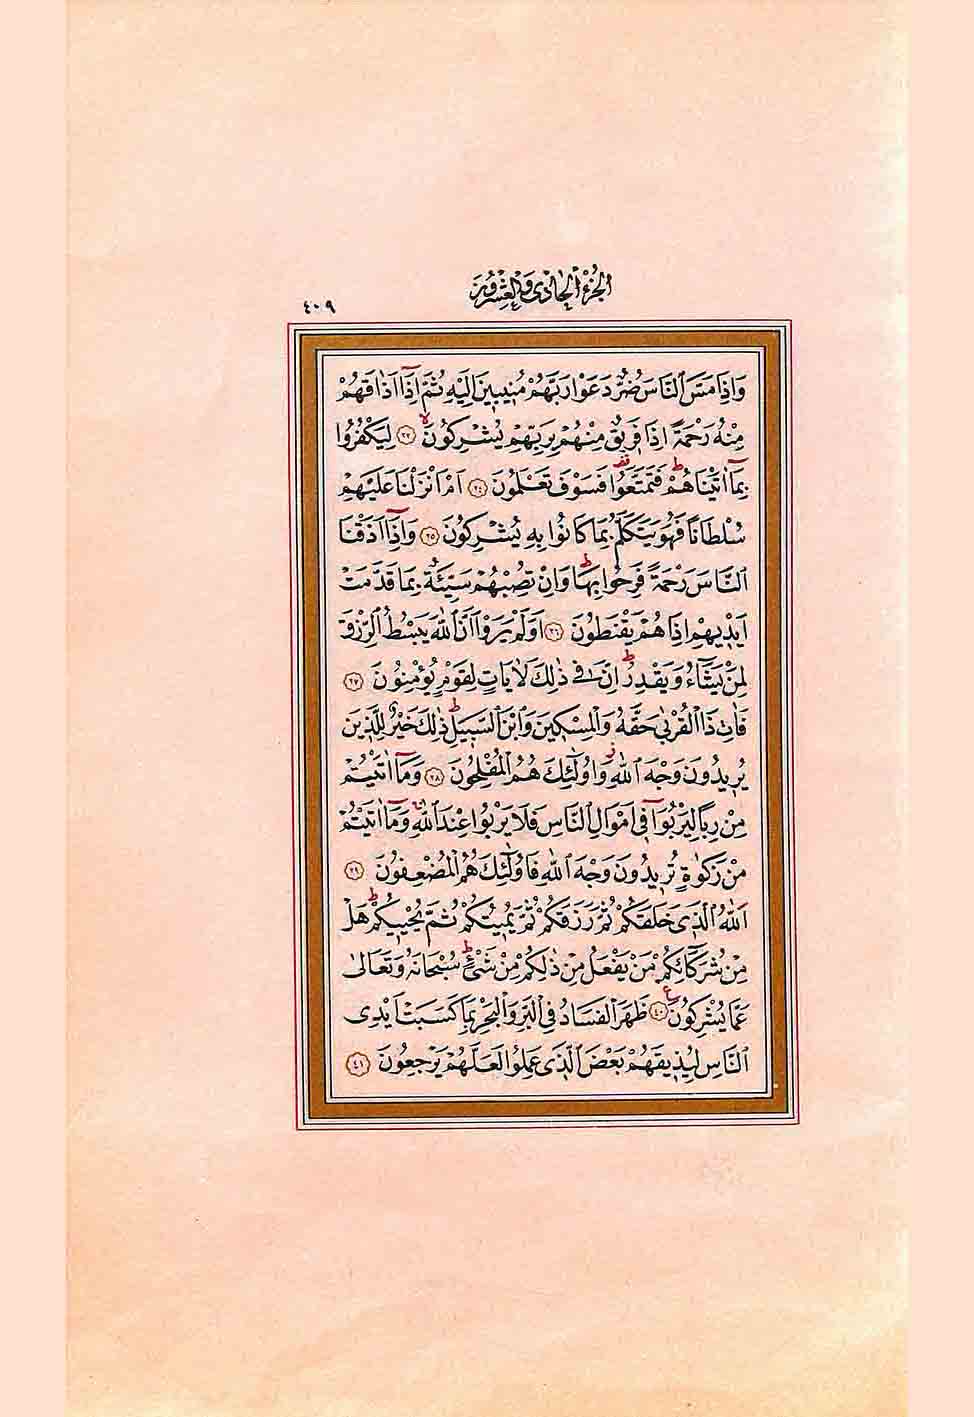 الجزء الحادي والعشرون
٤٠٩
وَاِذَا مَسَّ النَّاسَ ضُرٌّ دَعَوْا رَبَّهُمْ مُنٖيبٖينَ اِلَيْهِ ثُمَّ اِذَٓا اَذَاقَهُمْ
مِنْهُ رَحْمَةً اِذَا فَرٖيقٌ مِنْهُمْ بِرَبِّهِمْ يُشْرِكُونَۙ ٣٣ لِيَكْفُرُوا
بِمَٓا اٰتَيْنَاهُمْؕ فَتَمَتَّعُوا فَسَوْفَ تَعْلَمُونَ ٣٤ اَمْ اَنْزَلْنَا عَلَيْهِمْ
سُلْطَانًا فَهُوَ يَتَكَلَّمُ بِمَا كَانُوا بِهٖ يُشْرِكُونَ ٣٥ وَاِذَٓا اَذَقْنَا
النَّاسَ رَحْمَةً فَرِحُوا بِهَاؕ وَاِنْ تُصِبْهُمْ سَيِّئَةٌ بِمَا قَدَّمَتْ
اَيْدٖيهِمْ اِذَا هُمْ يَقْنَطُونَ ٣٦ اَوَلَمْ يَرَوْا اَنَّ اللّٰهَ يَبْسُطُ الرِّزْقَ
لِمَنْ يَشَٓاءُ وَيَقْدِرُؕ اِنَّ فٖي ذٰلِكَ لَاٰيَاتٍ لِقَوْمٍ يُؤْمِنُونَ ٣٧
فَاٰتِ ذَا الْقُرْبٰى حَقَّهُ وَالْمِسْكٖينَ وَابْنَ السَّبٖيلِؕ ذٰلِكَ خَيْرٌ لِلَّذٖينَ
يُرٖيدُونَ وَجْهَ اللّٰهِؗ وَاُولٰٓئِكَ هُمُ الْمُفْلِحُونَ ٣٨ وَمَٓا اٰتَيْتُمْ
مِنْ رِبًا لِيَرْبُوَا۬ فٖٓي اَمْوَالِ النَّاسِ فَلَا يَرْبُوا عِنْدَ اللّٰهِۚ وَمَٓا اٰتَيْتُمْ
مِنْ زَكٰوةٍ تُرٖيدُونَ وَجْهَ اللّٰهِ فَاُولٰٓئِكَ هُمُ الْمُضْعِفُونَ ٣٩
اَللّٰهُ الَّذٖي خَلَقَكُمْ ثُمَّ رَزَقَكُمْ ثُمَّ يُمٖيتُكُمْ ثُمَّ يُحْيٖيكُمْؕ هَلْ
مِنْ شُرَكَٓائِكُمْ مَنْ يَفْعَلُ مِنْ ذٰلِكُمْ مِنْ شَيْءٍؕ سُبْحَانَهُ وَتَعَالٰى
عَمَّا يُشْرِكُونَ ٤٠ ظَهَرَ الْفَسَادُ فِي الْبَرِّ وَالْبَحْرِ بِمَا كَسَبَتْ اَيْدِي
النَّاسِ لِيُذٖيقَهُمْ بَعْضَ الَّذٖي عَمِلُوا لَعَلَّهُمْ يَرْجِعُونَ ٤١